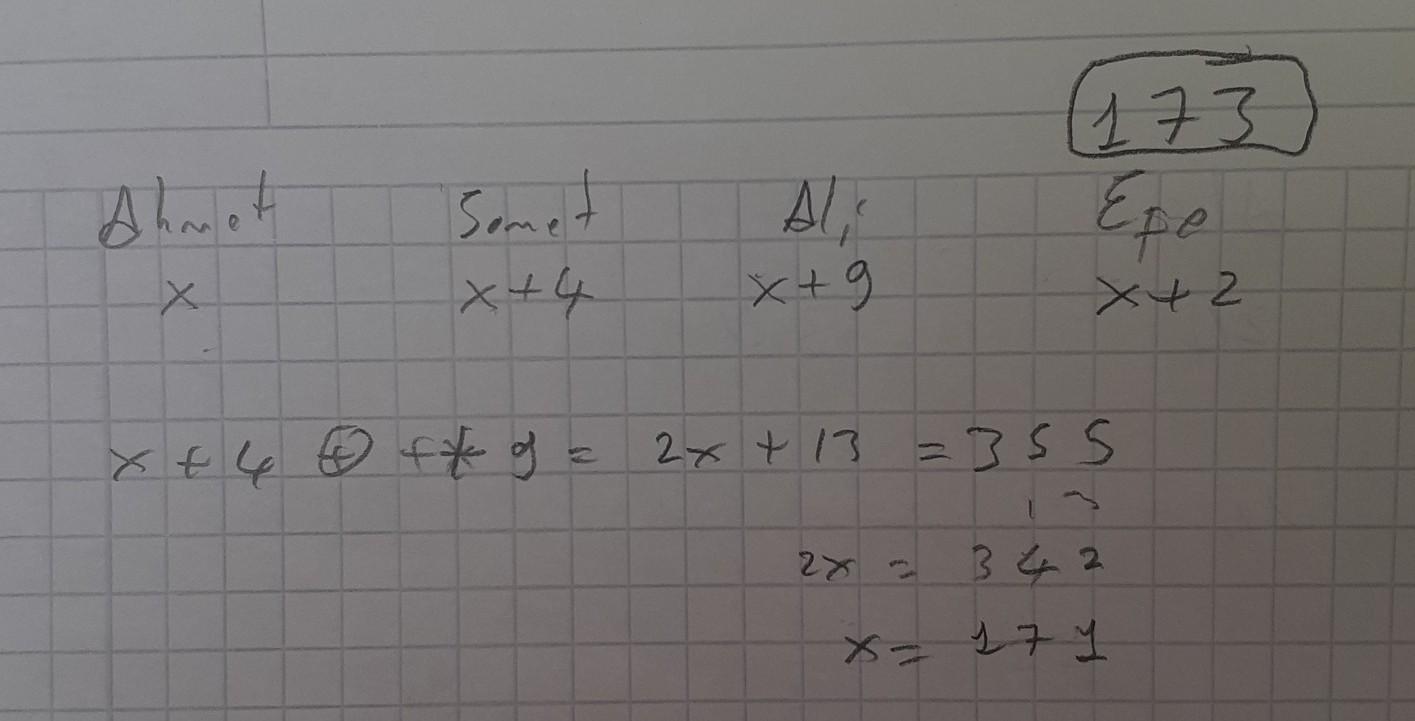 173
Ahmet Samet Ali Efe
x x+4 x+9 x+2
x + 4 + + x 9 = 2x + 13 = 355
13
2x = 342
x = 171